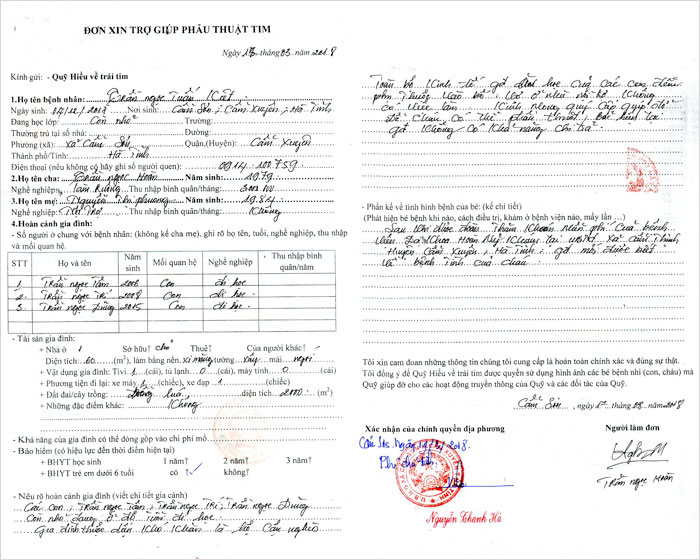 ĐƠN XIN TRỢ GIÚP PHẪU THUẬT TIM
Ngày 17 tháng 03 năm 2018
Kính gửi: - Quỹ Hiểu về trái tim
1.Họ tên bệnh nhân: Trần ngọc Tuấn Kiệt
Ngày sinh: 04/12/2017 Nơi sinh: Cẩm Sơn, Cẩm Xuyên, Hà Tĩnh
Đang học lớp: Còn nhỏ Trường:
Thường trú tại số nhà: Đường:
Phường (xã): Xã Cẩm Sơn Quận,(Huyện): Cẩm Xuyên
Thành phố/Tỉnh: Hà Tĩnh
Điện thoại (nếu không có hãy ghi số người quen): 0914.102.759
2.Họ tên cha: Trần ngọc Hoàn Năm sinh: 1979
Nghề nghiệp: Làm Ruộng Thu nhập bình quân/tháng:
3.Họ tên mẹ: Nguyễn Thị phương Năm sinh: 1984
Nghề nghiệp: Thu nhập bình quân/tháng: Không
4.Hoàn cảnh gia đình:
- Số người ở chung với bệnh nhân: (không kể cha mẹ). ghi rõ họ tên, tuổi, nghề nghiệp, thu nhập
và mối quan hệ.
STT Họ và tên Năm sinh Mối quan hệ Nghề nghiệp Thu nhập bình quân/năm
1 Trần ngọc Tâm 2006 Con đi học
2 Trần ngọc Trí 2008 Con đi học
3 Trần ngọc Dũng 2015 Con đi học
- Tài sản gia đình:
+ Nhà ở 1 Sở hữu↑ Thuê↑ Của người khác↑
Diện tích: 60 (m²), làm bằng nền xi măng tường xây mái ngói
+ Vật dụng gia đình: Tivi 1 (cái), tủ lạnh 0 (cái), máy tính 0 (cái)
+ Phương tiện đi lại: xe máy 1 (chiếc), xe đạp 1 (chiếc)
+ Đất đai/cây trồng: lúa diện tích 2000 (m²)
+ Những đặc điểm khác: Không
- Khả năng của gia đình có thể đóng góp vào chi phí mổ
- Bảo hiểm (có hiệu lực đến thời điểm hiện tại)
+ BHYT học sinh 1 năm↑ 2 năm↑ 3 năm↑
+ BHYT trẻ em dưới 6 tuổi có ↑ ✓ không↑
- Nêu rõ hoàn cảnh gia đình (viết chi tiết gia cảnh)
Các con: Trần ngọc Tâm, Trần ngọc Trí, Trần ngọc Dũng
Còn nhỏ đang ở độ Tuổi đi học
Gia đình thuộc diện Khó Khăn là hộ Cận nghèo
Toàn bộ Kinh tế gđ
phụ Thuộc vào bố
có việc làm. Kính mong quý cấp giúp đỡ
để cháu có Thể phẫu thuật, bởi hiện tại
gđ không có khả năng chi trả
- Phần kể về tình hình bệnh của bé: (kể chi tiết)
(Phát hiện bệnh khi nào, cách điều trị, khám ở bệnh viện nào, mấy lần …)
Sau khi được đoàn Thăm Khám miễn phí của Bệnh
viện Đa Khoa Hoàn Mỹ Khám tại UBND xã Cẩm Thịnh,
Huyện Cẩm Xuyên, Hà Tĩnh, gđ mới được biết
về bệnh Tình của cháu.
Tôi xin cam đoan những thông tin chúng tôi cung cấp là hoàn toàn chính xác và đúng sự thật.
Tôi đồng ý để Quỹ Hiểu về trái tim được quyền sử dụng hình ảnh các bé bệnh nhi (con, cháu) mà
Quỹ giúp đỡ cho các hoạt động truyền thông của Quỹ và các đối tác của Quỹ.
Cẩm Sơn, ngày 17 03 2018
Xác nhận của chính quyền địa phương
Người làm đơn
Cẩm Sơn Ngày 2018
Phó chủ tịch
Nguyễn Thanh Hà
Trần ngọc Hoàn